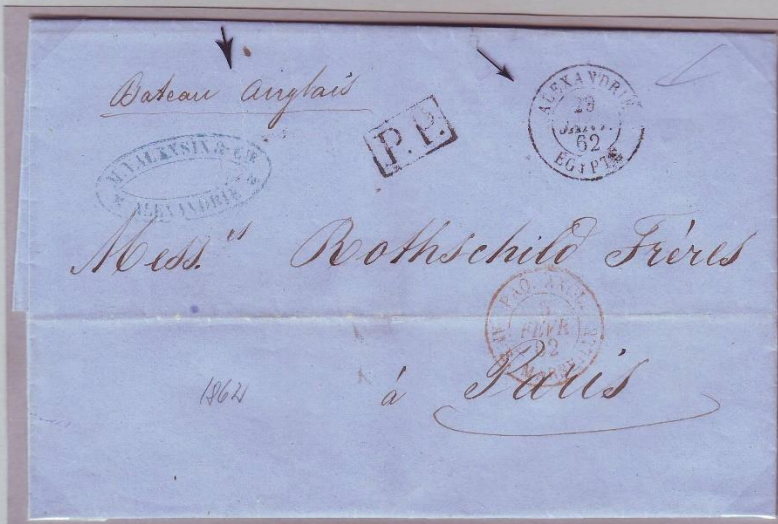 Bateau Anglais
P.P.
ALEXANDRIE
JANV.
62
EGYPTE
& CIE
ALEXANDRIE
Mess.rs Rothschild Fréres
PAQ. ANGL.
FEVR
62
1862
à Paris